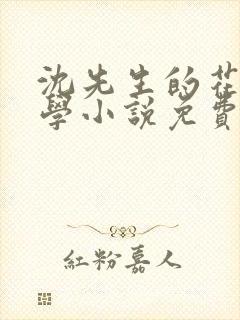 沈先生的花
學小說免費
紅粉嘉人